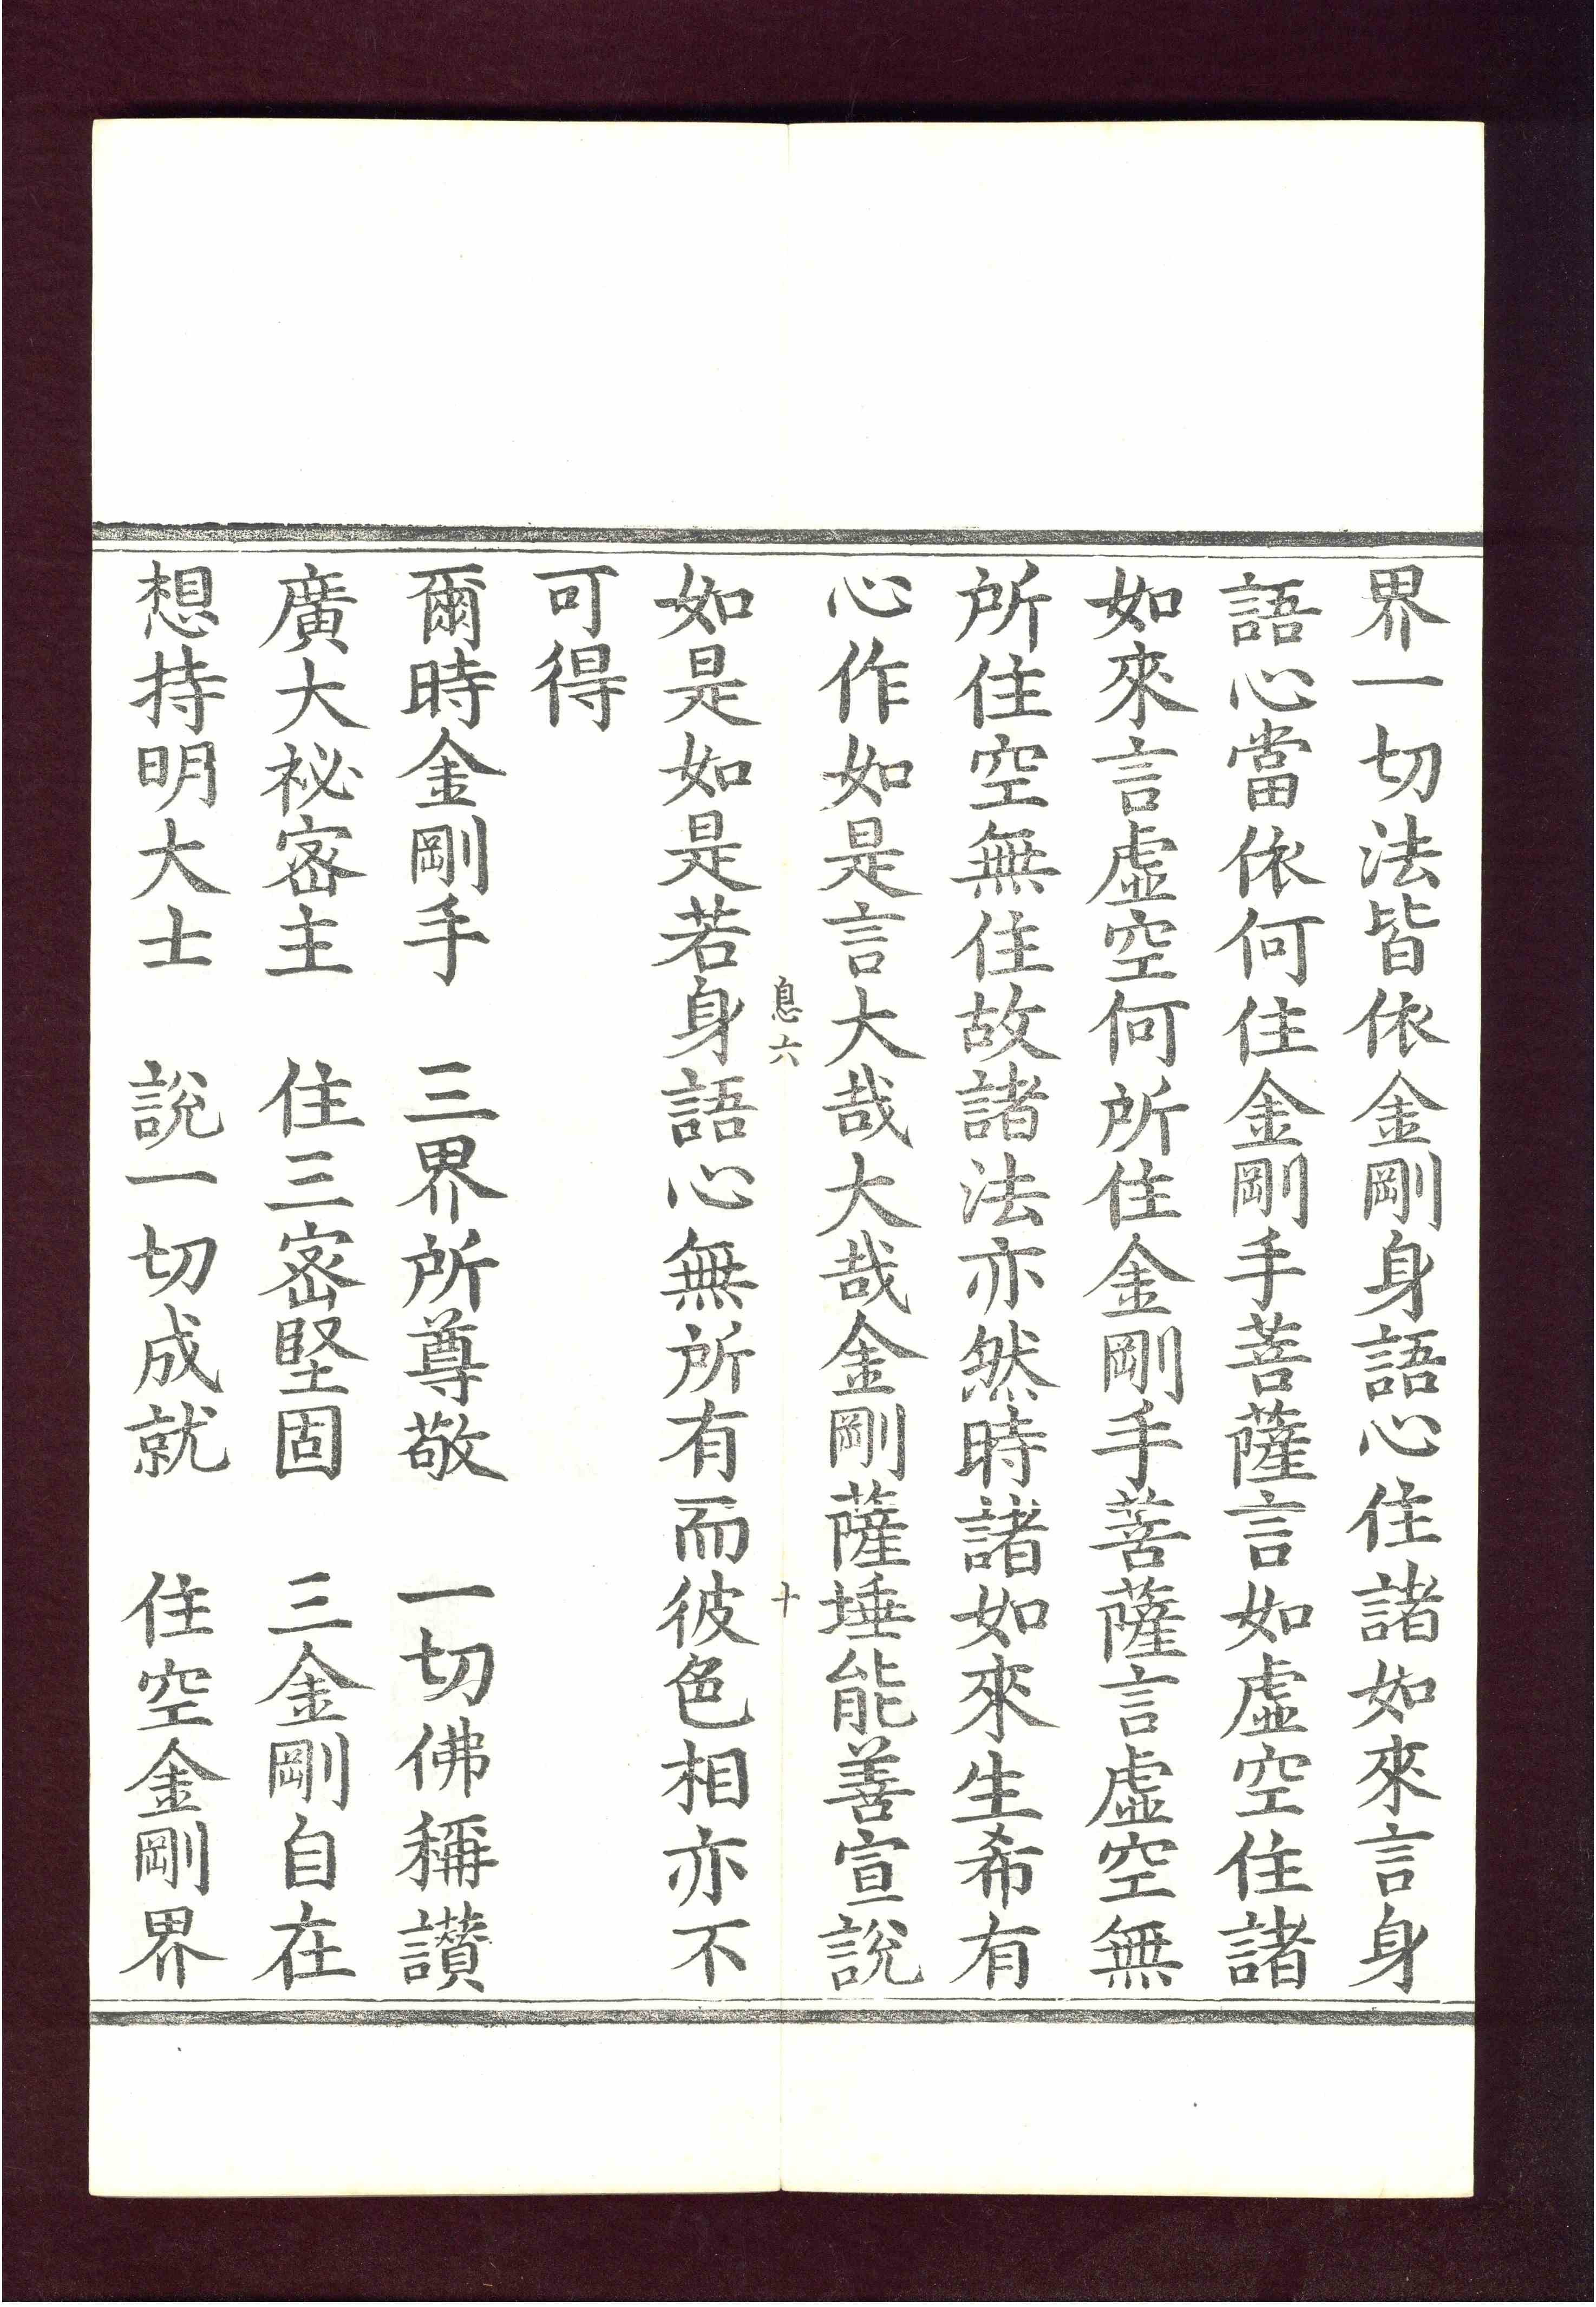 界一切法皆依金剛身語心住諸如來言身
語心當依何住金剛手菩薩言如虛空住諸
如來言虛空何所住金剛手菩薩言虛空無
所住空無住故諸法亦然時諸如來生希有
心作如是言大哉大哉金剛薩埵能善宣說
息六 十
如是如是若身語心無所有而彼色相亦不
可得
爾時金剛手 三界所尊敬 一切佛稱讚
廣大祕密主 住三密堅固 三金剛自在
想持明大士 說一切成就 住空金剛界